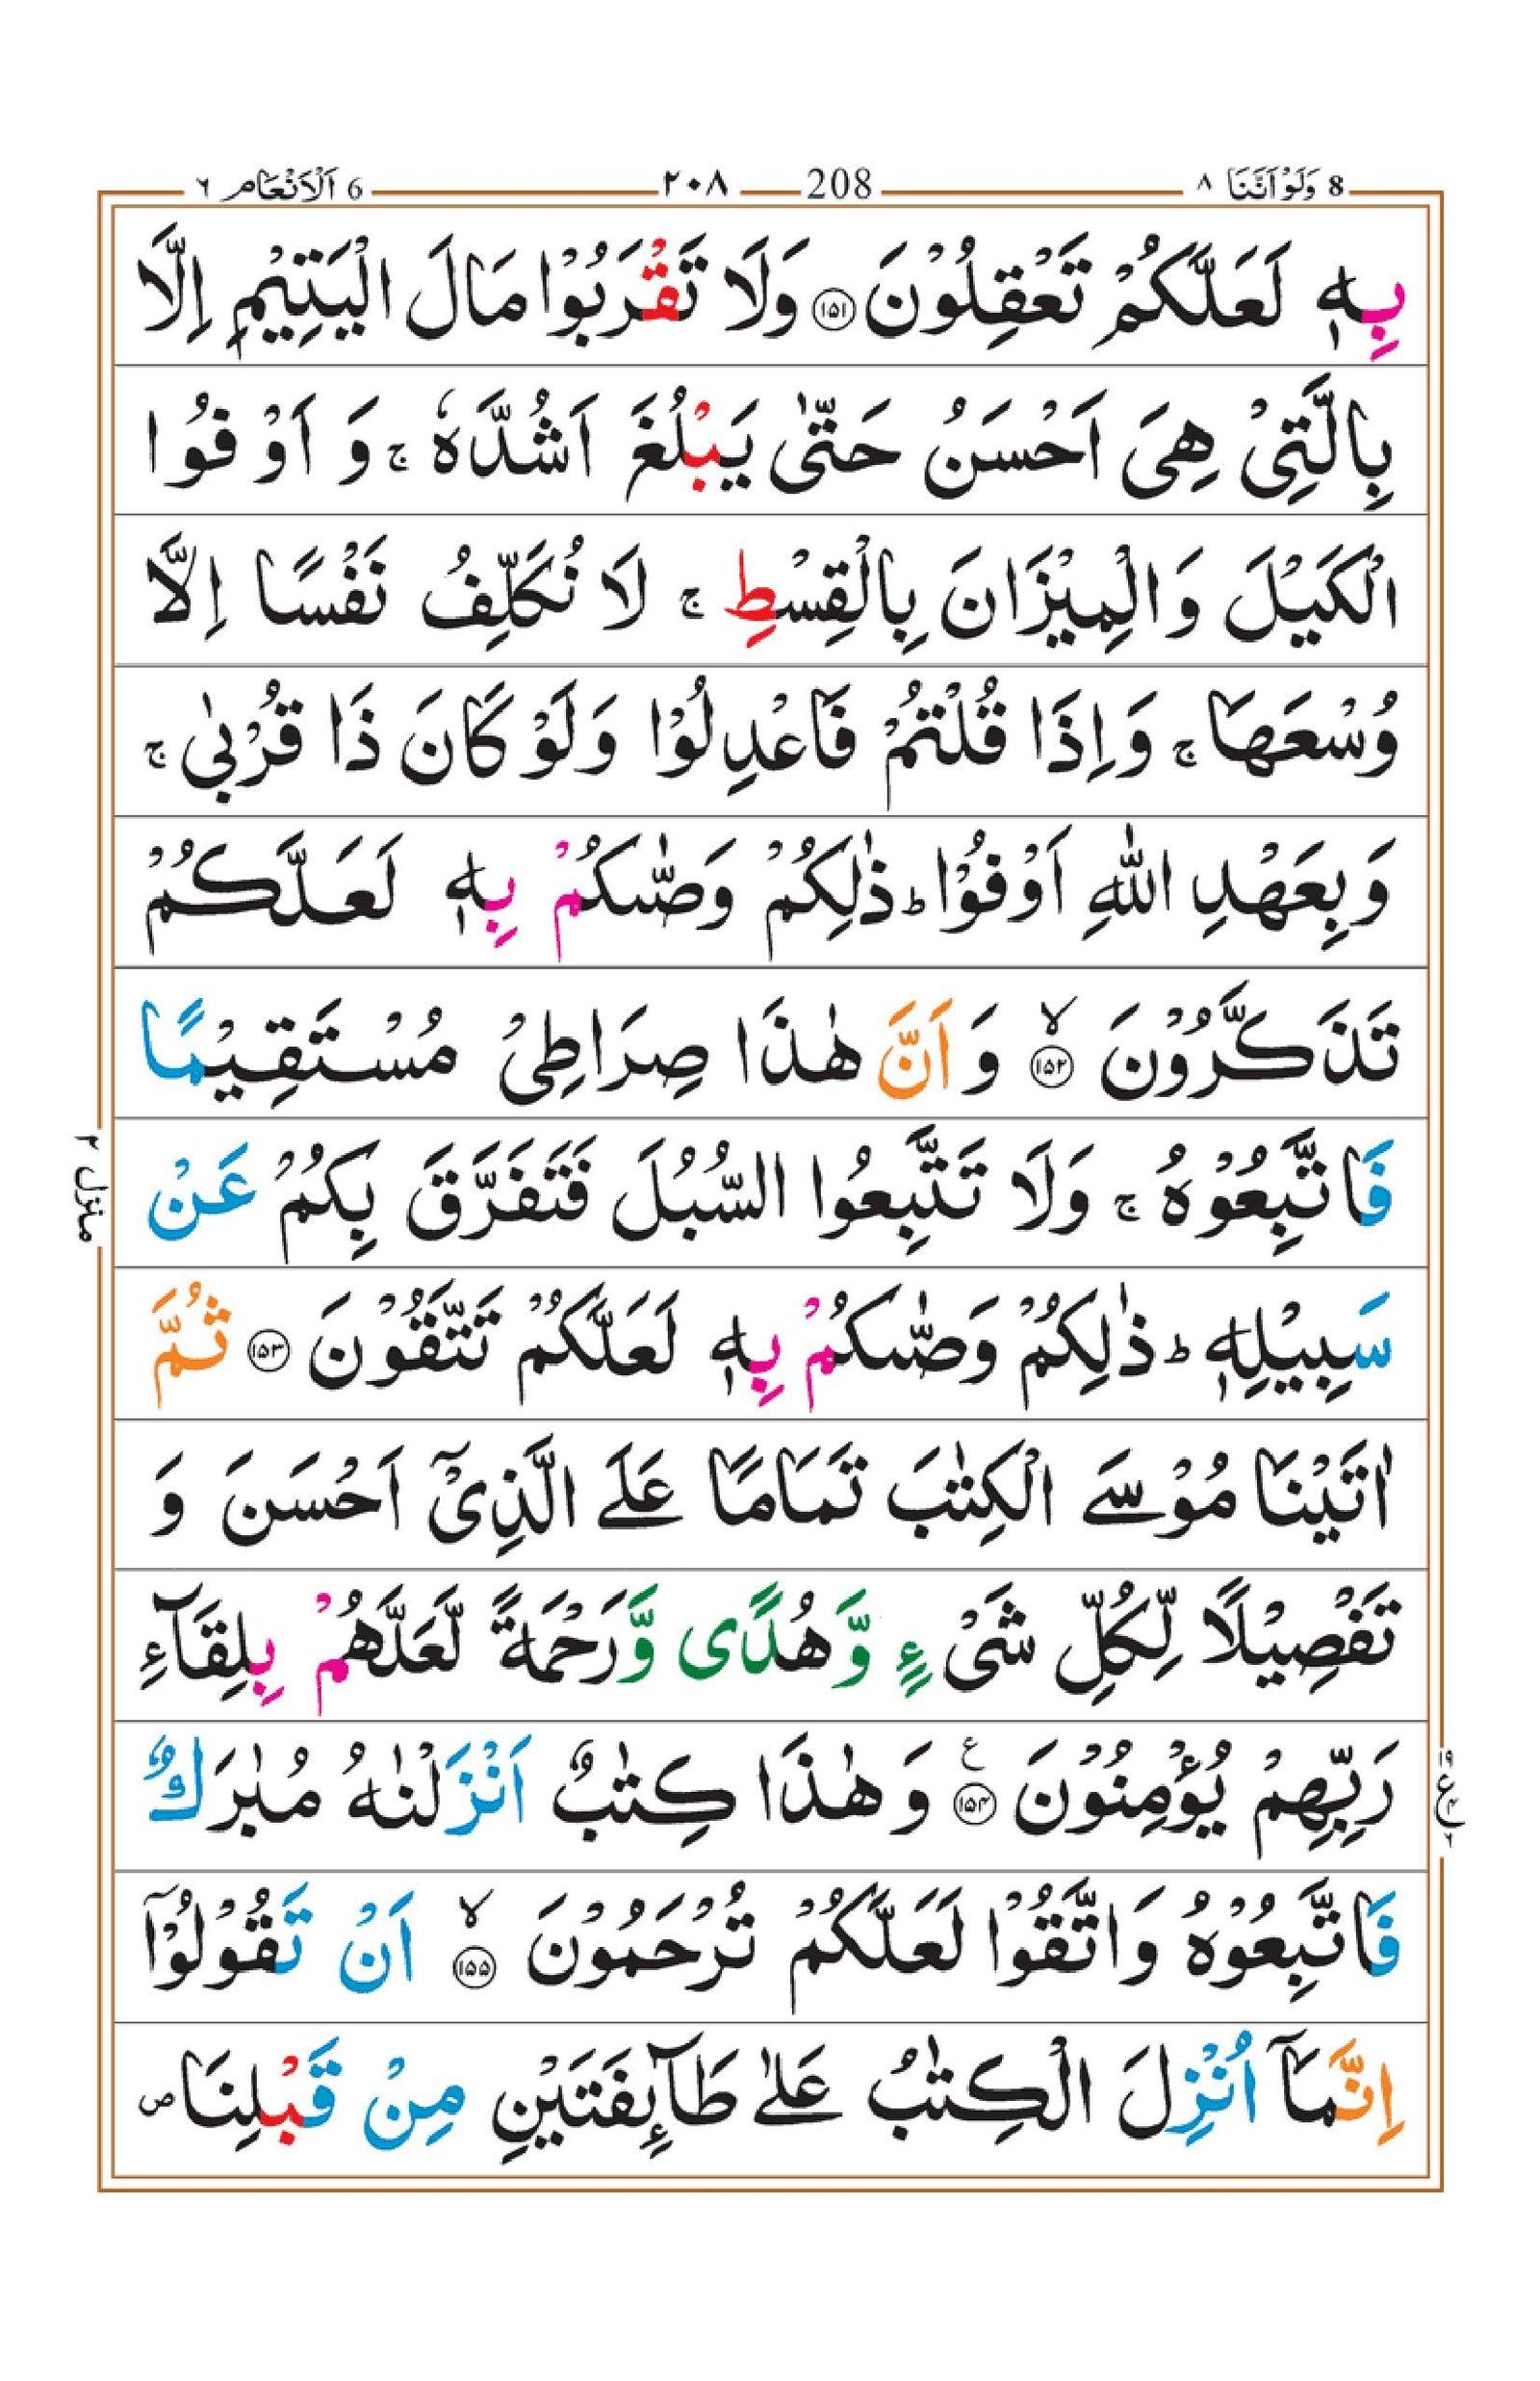 8 وَلَوْ اَنَّنَا ٨ 208 ٢٠٨ 6 اَلْاَنْعَام ٦
بِهٖ لَعَلَّكُمْ تَعْقِلُوْنَ ﴿۱۵۱﴾ وَلَا تَقْرَبُوْا مَالَ الْيَتِيْمِ اِلَّا
بِالَّتِىْ هِىَ اَحْسَنُ حَتّٰى يَبْلُغَ اَشُدَّهٗ ۚ وَ اَوْفُوا
الْكَيْلَ وَالْمِيْزَانَ بِالْقِسْطِ ۚ لَا نُكَلِّفُ نَفْسًا اِلَّا
وُسْعَهَا ۚ وَاِذَا قُلْتُمْ فَاعْدِلُوْا وَلَوْ كَانَ ذَا قُرْبٰى ۚ
وَبِعَهْدِ اللّٰهِ اَوْفُوْا ؕ ذٰلِكُمْ وَصّٰىكُمْ بِهٖ لَعَلَّكُمْ
تَذَكَّرُوْنَ ۙ﴿۱۵۲﴾ وَ اَنَّ هٰذَا صِرَاطِىْ مُسْتَقِيْمًا
فَاتَّبِعُوْهُ ۚ وَلَا تَتَّبِعُوا السُّبُلَ فَتَفَرَّقَ بِكُمْ عَنْ
سَبِيْلِهٖ ؕ ذٰلِكُمْ وَصّٰىكُمْ بِهٖ لَعَلَّكُمْ تَتَّقُوْنَ ﴿۱۵۳﴾ ثُمَّ
اٰتَيْنَا مُوْسَے الْكِتٰبَ تَمَامًا عَلَے الَّذِىْۤ اَحْسَنَ وَ
تَفْصِيْلًا لِّكُلِّ شَىْءٍ وَّهُدًى وَّرَحْمَةً لَّعَلَّهُمْ بِلِقَآءِ
رَبِّهِمْ يُؤْمِنُوْنَ ﴿۱۵۴﴾ ع وَهٰذَا كِتٰبٌ اَنْزَلْنٰهُ مُبٰرَكٌ
فَاتَّبِعُوْهُ وَاتَّقُوْا لَعَلَّكُمْ تُرْحَمُوْنَ ۙ﴿۱۵۵﴾ اَنْ تَقُوْلُوْۤا
اِنَّمَاۤ اُنْزِلَ الْكِتٰبُ عَلٰى طَآئِفَتَيْنِ مِنْ قَبْلِنَا ص
منزل ٢
١٩ ع ۴ ٦